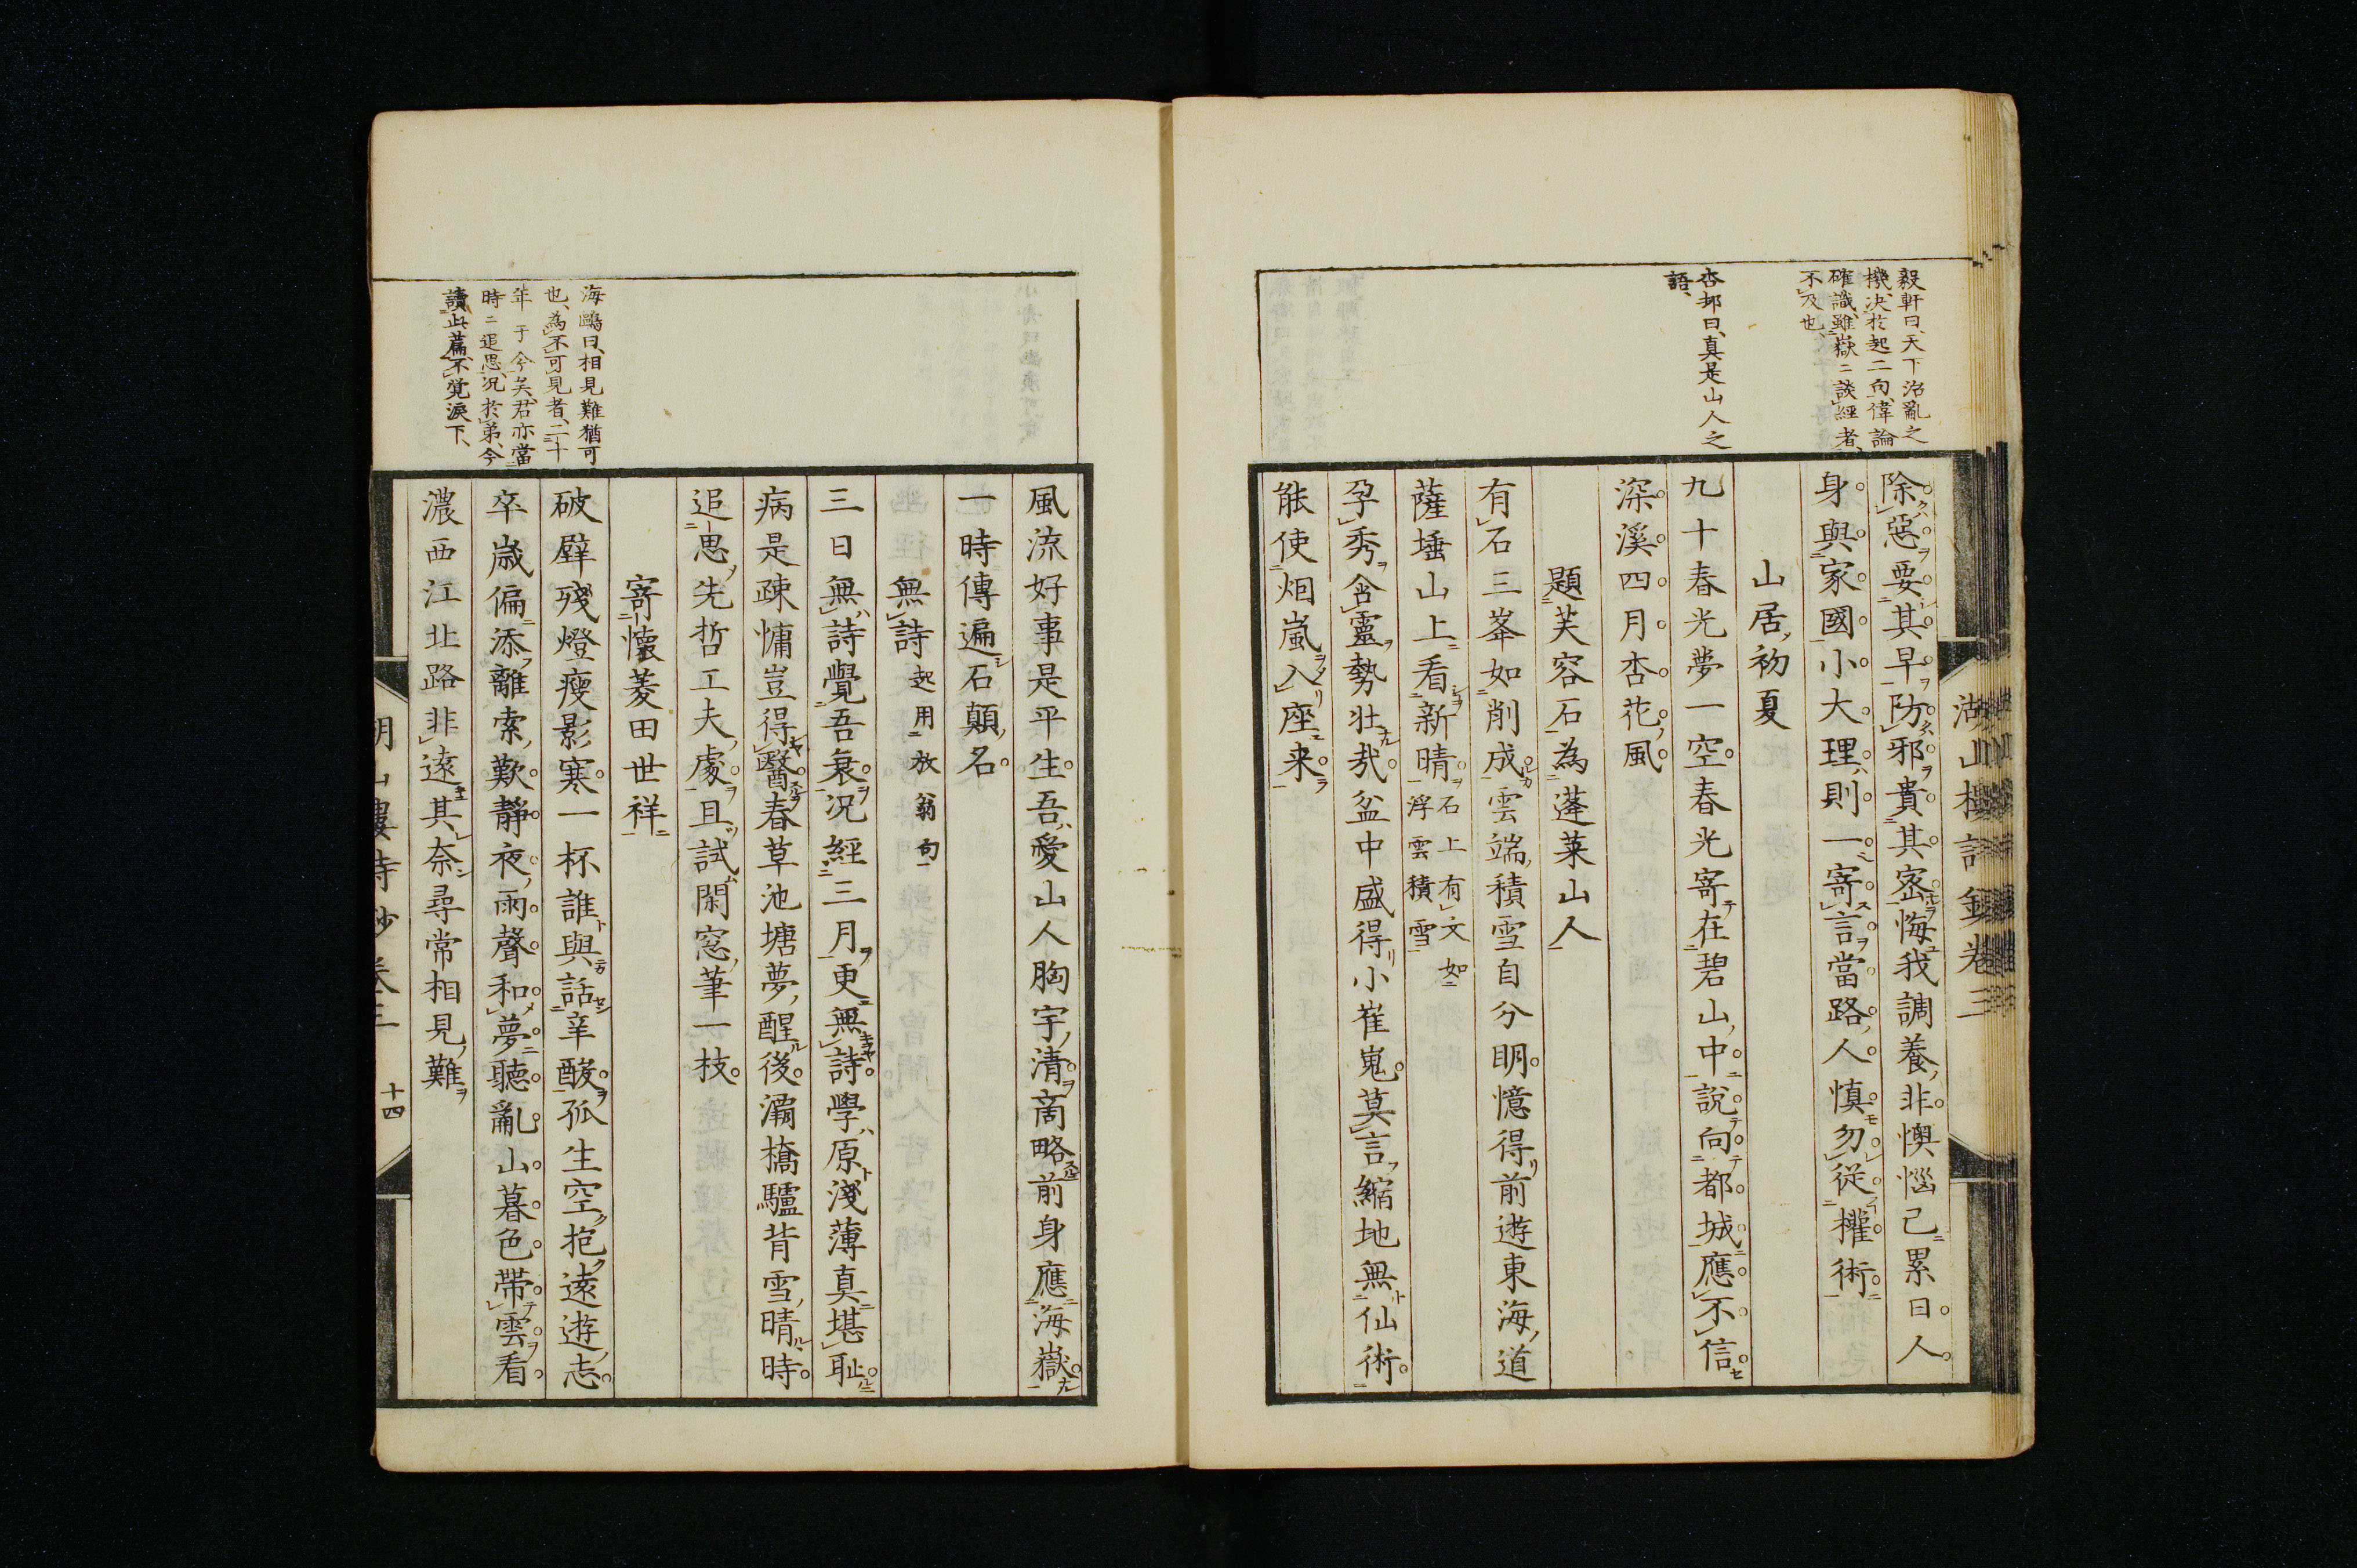 毅軒曰、天下治亂之
機、決於起二句、偉論
確識、雖嶽〻談經者、
不及也、
杏邨曰、真是山人之
語、
湖山樓詩鈔卷三
除惡要其早防邪貴其密悔我調養非懊惱已累日人
身與家國小大理則一寄言當路人慎勿從權術
山居初夏
九十春光夢一空春光寄在碧山中說向都城應不信
深溪四月杏花風
題芙容石為蓬萊山人
有石三峯如削成雲端積雪自分明憶得前遊東海道
薩埵山上看新晴石上有文如
浮雲積雪
孕秀含靈勢壯哉盆中盛得小崔嵬莫言縮地無仙術
能使烟嵐入座来
海鷗曰、相見難猶可
也、為不可見者、二十
年于今矣、君亦當
時〻追思、況於弟、今
讀此篇、不覺淚下、
風流好事是平生吾愛山人胸宇清商略前身應海嶽
一時傳遍石顛名
無詩起用放翁句
三日無詩覺吾衰況經三月更無詩學原淺薄真堪耻
病是疎慵豈得醫春草池塘夢醒後灞橋驢背雪晴時
追思先哲工夫處且試閑窓筆一枝
寄懷菱田世祥
破壁殘燈瘦影寒一杯誰與話辛酸孤生空抱遠遊志
卒歳偏添離索歎靜夜雨聲和夢聽亂山暮色帶雲看
濃西江北路非遠其奈尋常相見難
湖山樓詩鈔卷三　十四